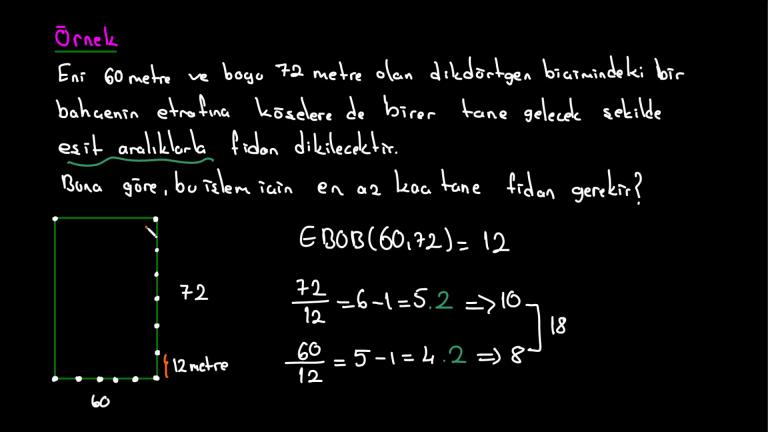 Örnek
Eni 60 metre ve boyu 72 metre olan dikdörtgen biçimindeki bir
bahçenin etrafına köşelere de birer tane gelecek şekilde
eşit aralıklarla fidan dikilecektir.
Buna göre, bu işlem için en az kaç tane fidan gerekir?
EBOB(60,72) = 12
72
72/12 = 6-1 = 5.2 => 10
18
12 metre
60/12 = 5-1 = 4.2 => 8
60